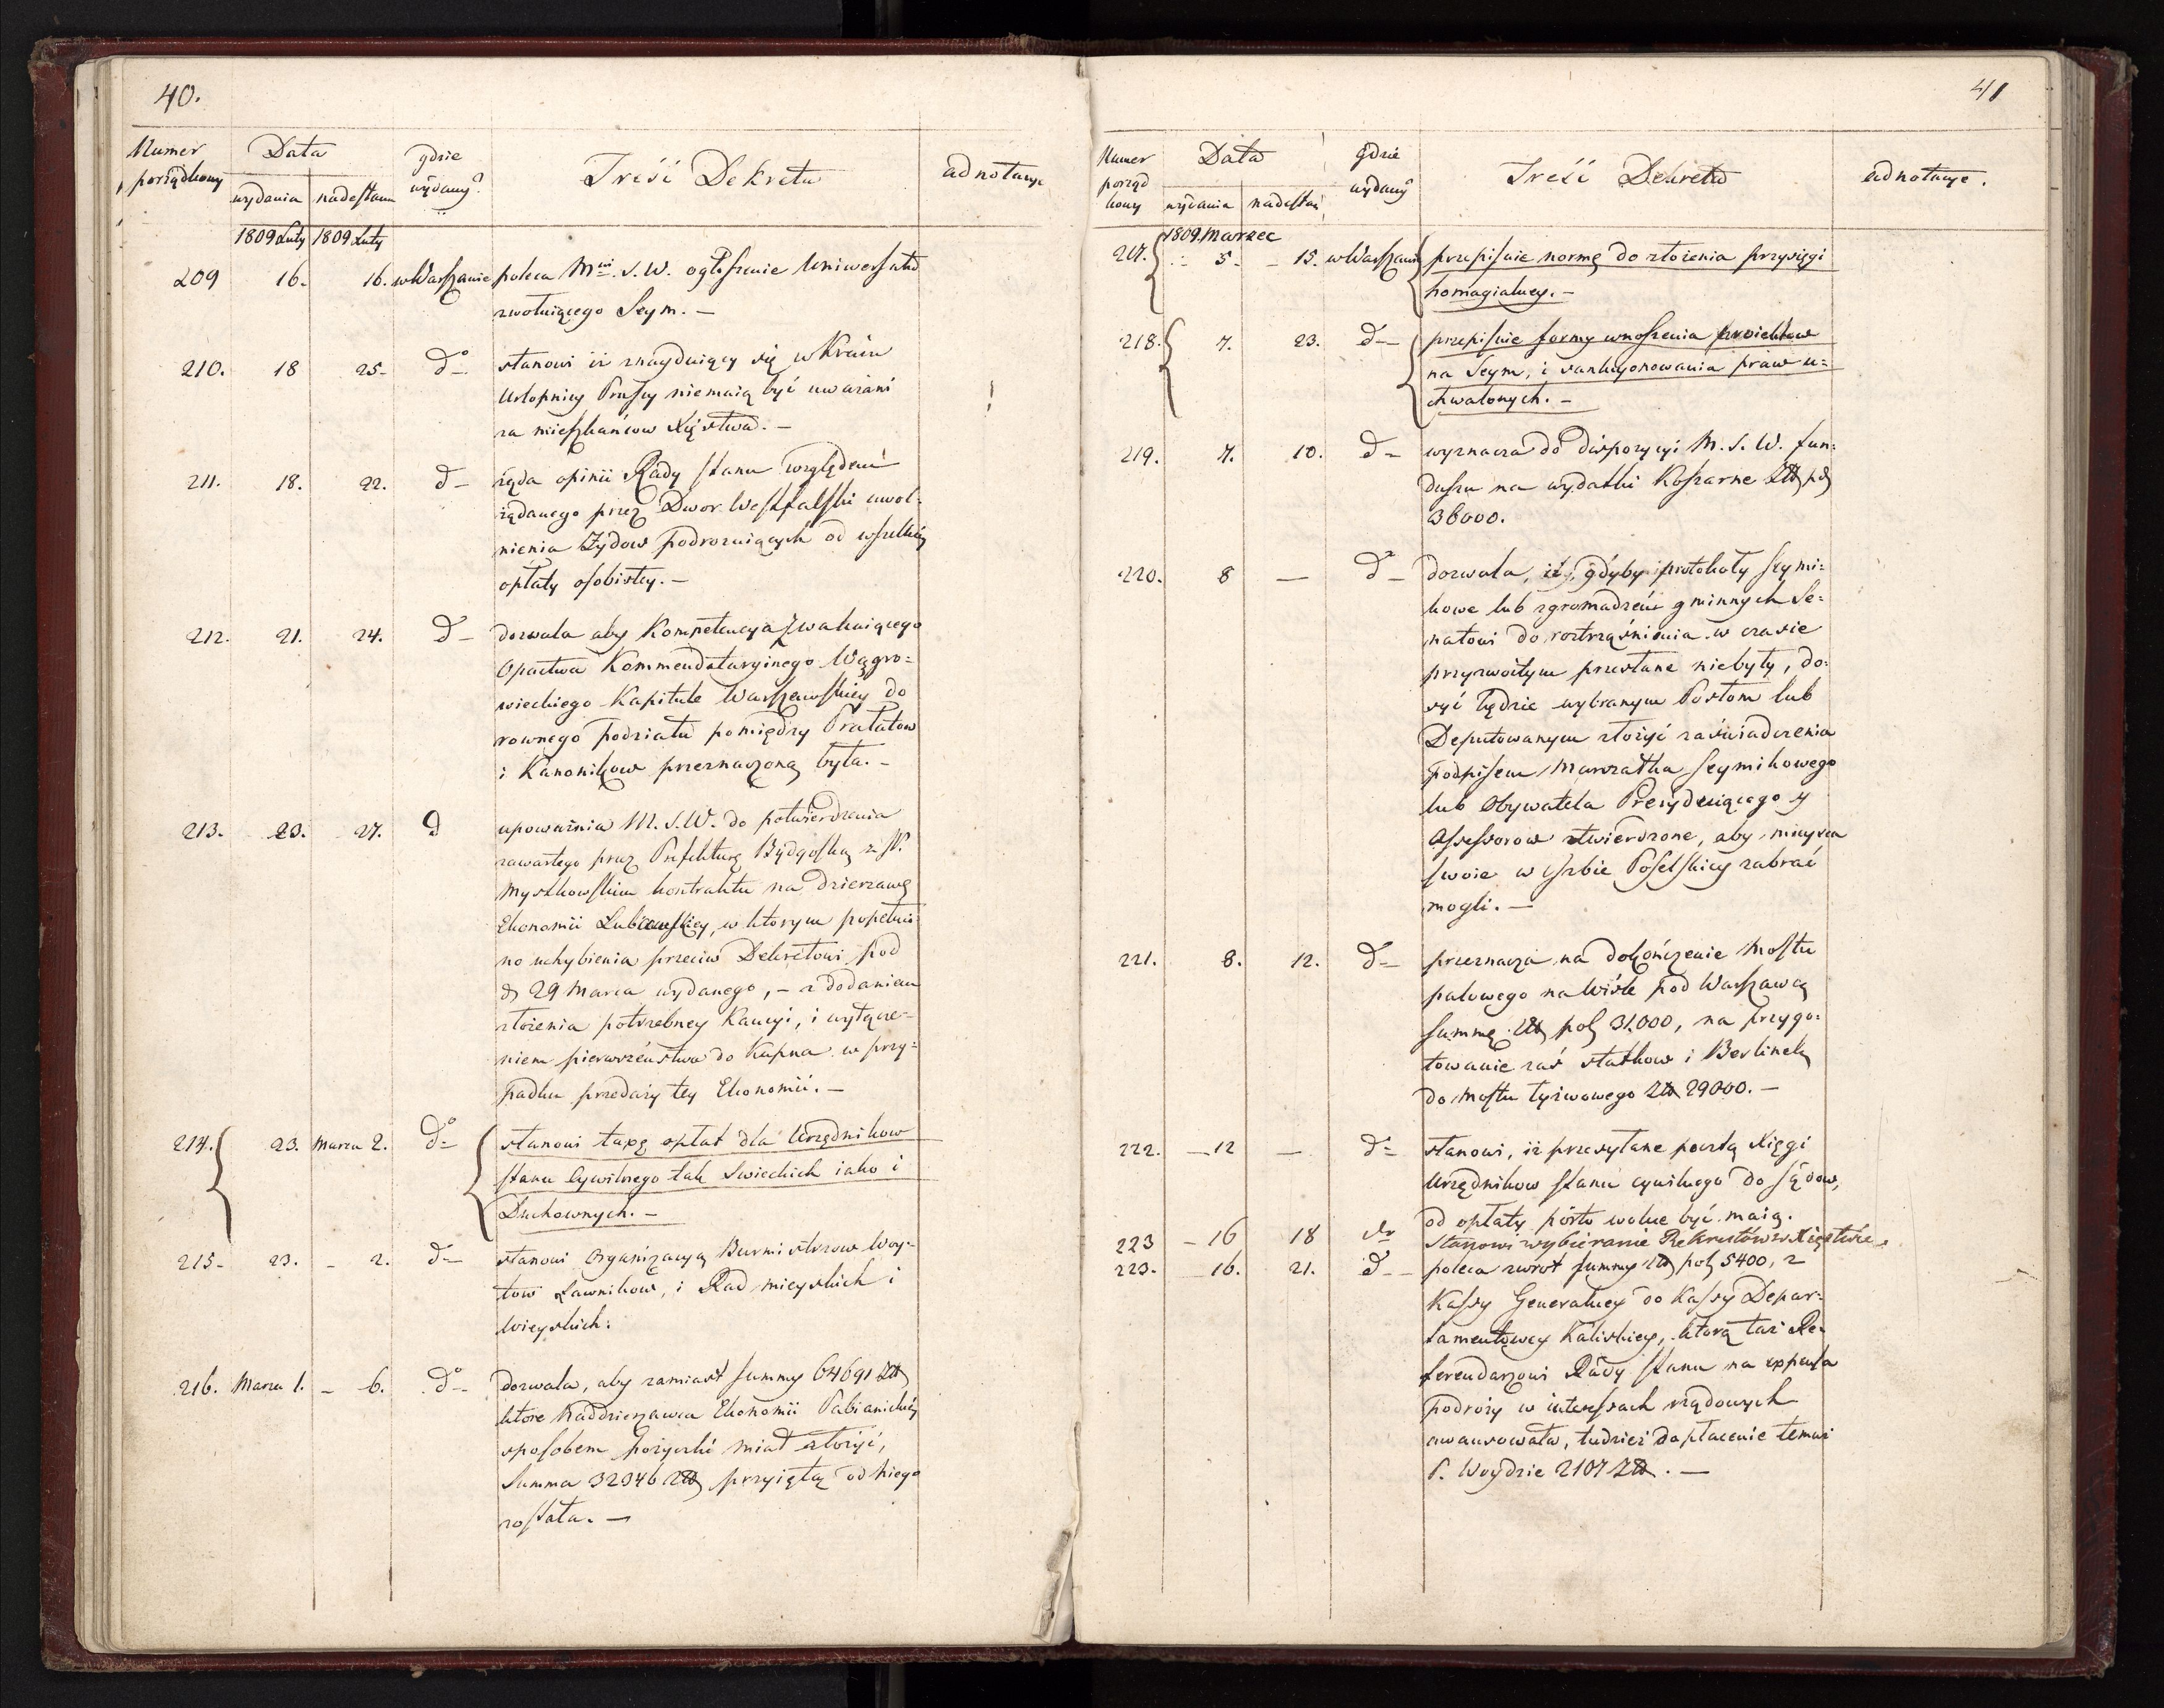 40.
Numer porządkowy
Data
gdzie wydany?
Treść Dekretu
adnotacye
wydania
nadesłania
1809 Luty 1809 Luty
209 16. 16. w Warszawie poleca Mwi S. W. ogłoszenie Uniwersału
zwołuiącego Seym. —
210. 18 25- do stanowi iż znayduiący się w Kraiu
Urlopnicy Pruscy niemaią być uważani
!
za mieszkańcow Xięstwa. —
211. 18. 22. d- żąda opinii Rady Stanu względem
żądanego przez Dwor Westfalski uwol-
nienia Żydow podrozuiących od wszelkiey
opłaty osobistey. —
212. 21. 24. d- dozwala aby Kompetencya z wakuiącego
Opactwa Kommendataryinego Wągro=
wieckiego Kapitule Warszawskiey do
rownego podziału pomiędzy Prałatow
i Kanonikow przeznaczoną była. -
213. 23. 27. d upoważnia M. S. W. do potwierdzenia
zawartego przez Prefekturę Bydgoską z JP.
Mystkowskim kontraktu na dzierzawę
Ekonomii, w ktorym popełnio-
no uchybienia przeciw Dekretowi pod
d. 29 Marca wydanego, - z dodaniem
złożenia potrzebney Kaucyi, i wyłącze-
niem pierwszeństwa do Kupna w przy=
padku przedaży tey Ekonomii. —
214. 23. Marca 2. do stanowi taxę opłat dla Urzędnikow
stanu Cywilnego tak Swieckich iako i
Duchownych. —
215- 23. - 2. d- stanowi Organizacyą Burmistrzow Woy-
tow Ławnikow, i Rad mieyskich i
Wieyskich.
216. Marca 1. - 6. do dozwala, aby zamiast summy 64691 Złł
ktore Naddzierzawca Ekonomii Pabianickiey
sposobem pożyczki miał złożyć,
Summa 32346 złł przyiętą od niego
została. —
41
Numer porządkowy
Data
gdzie wydany
Treść Dekretu
adnotacye.
wydania
nadesłań
1809. Marzec
217. 5. - 15. w Warszawie przepisuie normę do złożenia przysięgi
homagialney. —
218. 7. 23. d- przepisuie formy wnoszenia proiektow
na Seym, i sankcyonowania praw u=
chwalonych. —
219. 7. 10. d- wyznacza do dispozycyi M. S. W. fun=
duszu na wydatki Koszarne Złł pol
36000.
220. 8 — do dozwala, iż, gdyby protokoły seymi=
kowe lub zgromadzeń gminnych Se=
natowi do roztrząśnienia w czasie
przyzwoitym przesłane niebyły, do=
syć będzie wybranym Posłom lub
Deputowanym złożyć zaświadczenia
podpisem Marszałka Seymikowego
lub Obywatela Prezyduiącego y
Assessorow stwierdzone, aby mieysca
swoie w Izbie Poselskiey zabrać
mogli. —
221. 8. 12. d- przeznacza na dokończenie Mostu
palowego na Wiśle pod Warszawą
summę Złł pol 31.000, na przygo=
towanie zaś statkow i Berlinek
do Mostu łyżwowego Złł 29000. —
222. — 12 — d- stanowi, iż przesyłane pocztą Xięgi
Urzędnikow stanu cywilnego do Sądow,
od opłaty porto wolne być maią.
223 - 16 18 do Stanowi wybieranie Rekrutów w Xięstwie.
223. - 16. 21. d- poleca zwrot summy złł pol 5400, z
Kassy Generalney do Kassy Depar-
tamentowey Kaliskiey, ktorą taż Re-
ferendarzowi Rady Stanu na expensa
podroży w interessach rządowych
awansowała, tudzież dopłacenie temuż
P. Woydzie 2107 Złł. —